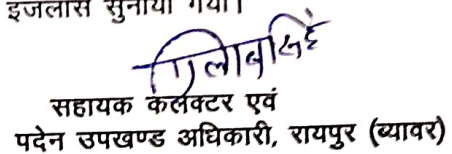 इजलास सुनाया गया।
गुलाबसिंह
सहायक कलक्टर एवं
पदेन उपखण्ड अधिकारी, रायपुर (ब्यावर)